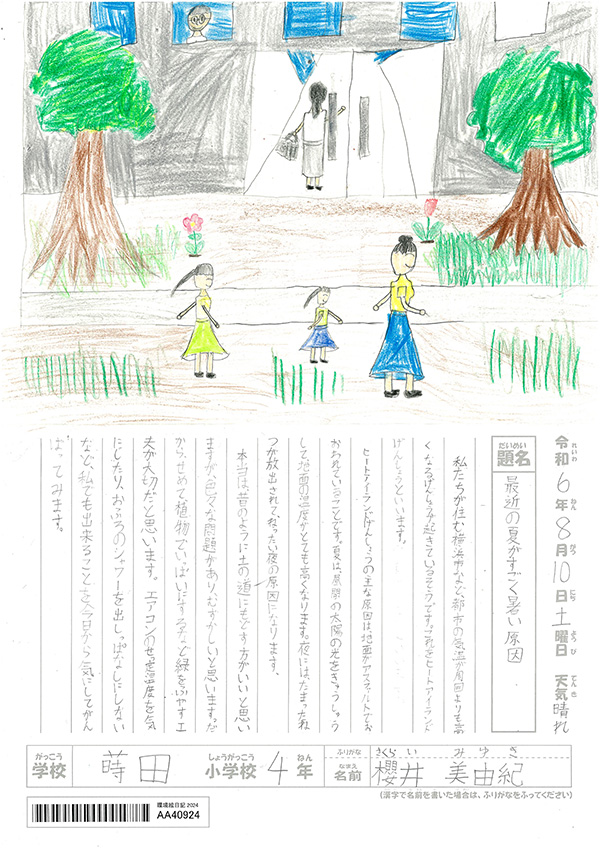 令和6年8月10日土曜日 天気晴れ
れいわ ねん がつ にち ど ようび てんき
だいめい
題名
最近の夏がすごく暑い原因
私たちが住む横浜市など、都市の気温が周囲よりも高
くなるげんしょうが起きているそうです。これをヒートアイランド
げんしょうといいます。
ヒートアイランドげんしょうの主な原因は、地面がアスファルトでお
おわれていることです。夏は、昼間の太陽の光をきゅうしゅう
して地面の温度がとても高くなります。夜には、たまったね
つが放出されてねったい夜の原因になります。
本当は、昔のように土の道にもどす方がいいと思い
ますが、色々な問題があり、むずかしいと思います。だ
から、せめて植物でいっぱいにするなど緑をふやす工
夫が大切だと思います。エアコンの温度を気
にしたり、おふろのシャワーを出しっぱなしにしない
など、私でも出来ることを今日から気にしてがん
ばってみます。
がっこう しょうがっこう ねん
学校 蒔田 小学校 4年
ふりがな さくらい みゆき
なまえ
名前 櫻井 美由紀
(漢字で名前を書いた場合は、ふりがなをふってください)
環境絵日記 2024
AA40924